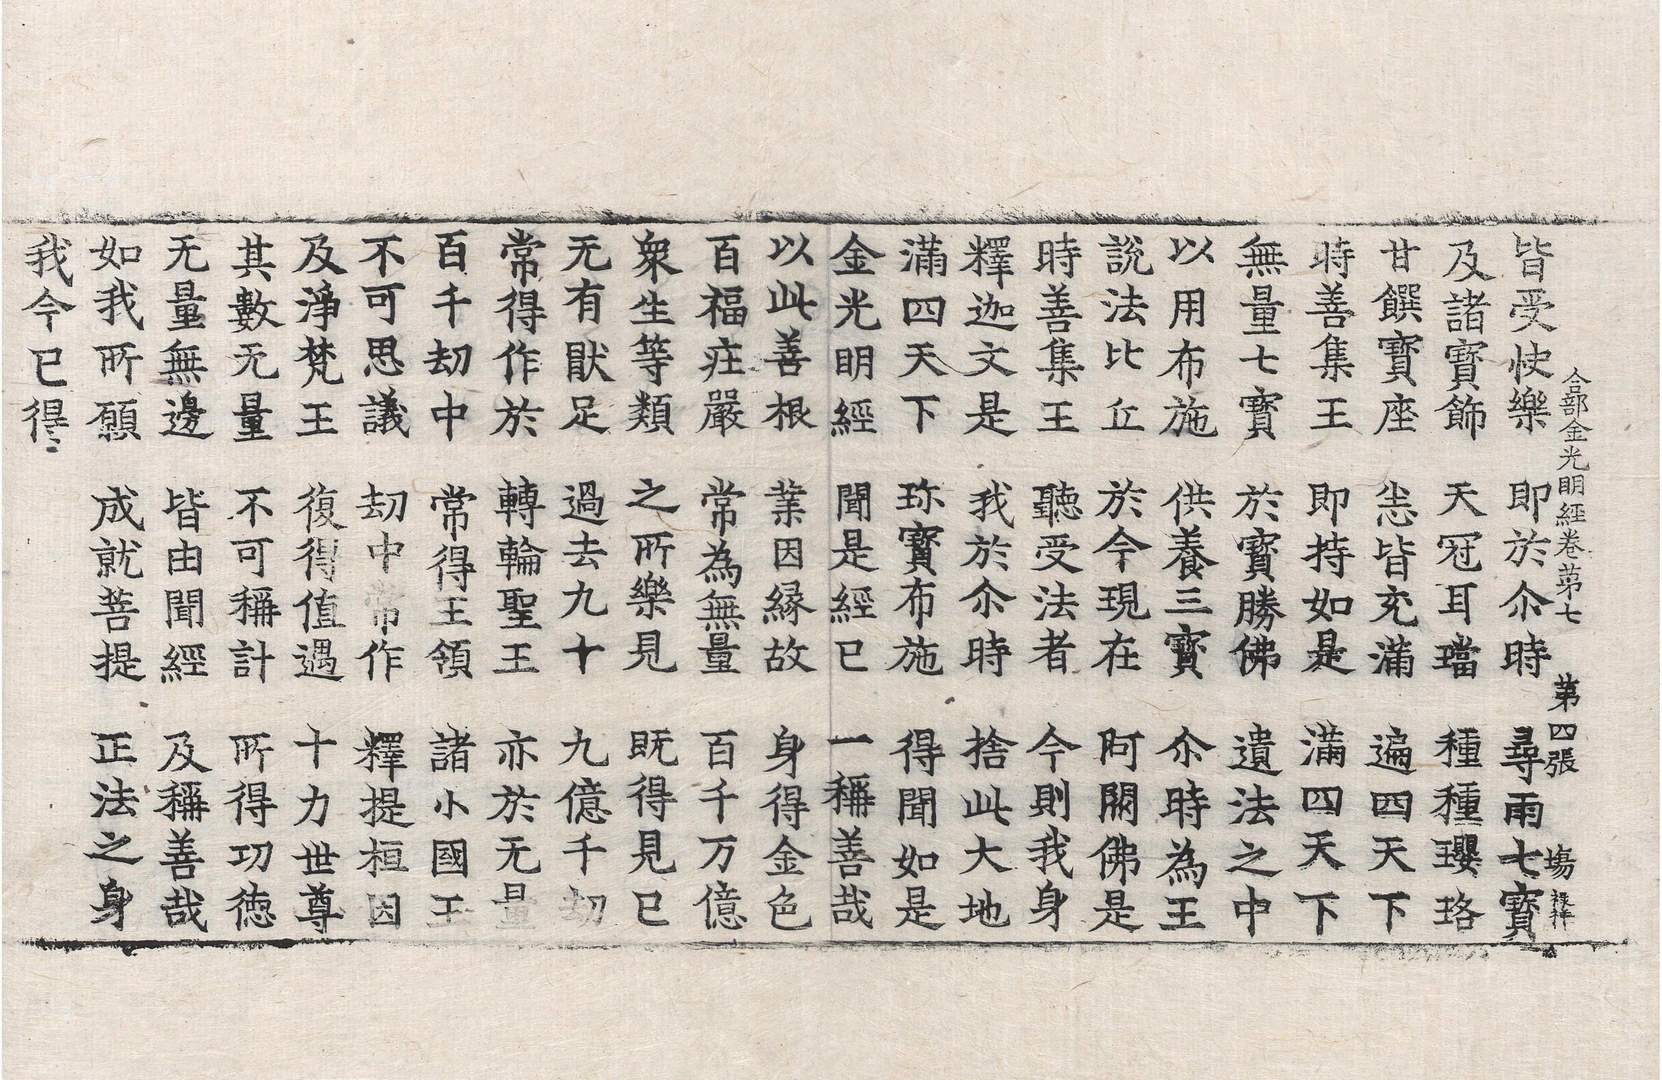 合部金光明經卷苐七 第四張 塲 禄祥
皆受快樂 即於尒時 尋雨七寶
及諸寶飾 天冠耳璫 種種瓔珞
甘饌寶座 悉皆充滿 遍四天下
時善集王 即持如是 滿四天下
無量七寶 於寶勝佛 遺法之中
以用布施 供養三寶 尒時為王
說法比丘 於今現在 阿閦佛是
時善集王 聽受法者 今則我身
釋迦文是 我於尒時 捨此大地
滿四天下 珎寶布施 得聞如是
金光明經 聞是經已 一稱善哉
以此善根 業因縁故 身得金色
百福莊嚴 常為無量 百千万億
衆生等類 之所樂見 既得見已
无有猒足 過去九十 九億千劫
常得作於 轉輪聖王 亦於无量
百千劫中 常得王領 諸小國王
不可思議 劫中常作 釋提桓因
及淨梵王 復得值遇 十力世尊
其數无量 不可稱計 所得功徳
无量無邊 皆由聞經 及稱善哉
如我所願 成就菩提 正法之身
我今已得